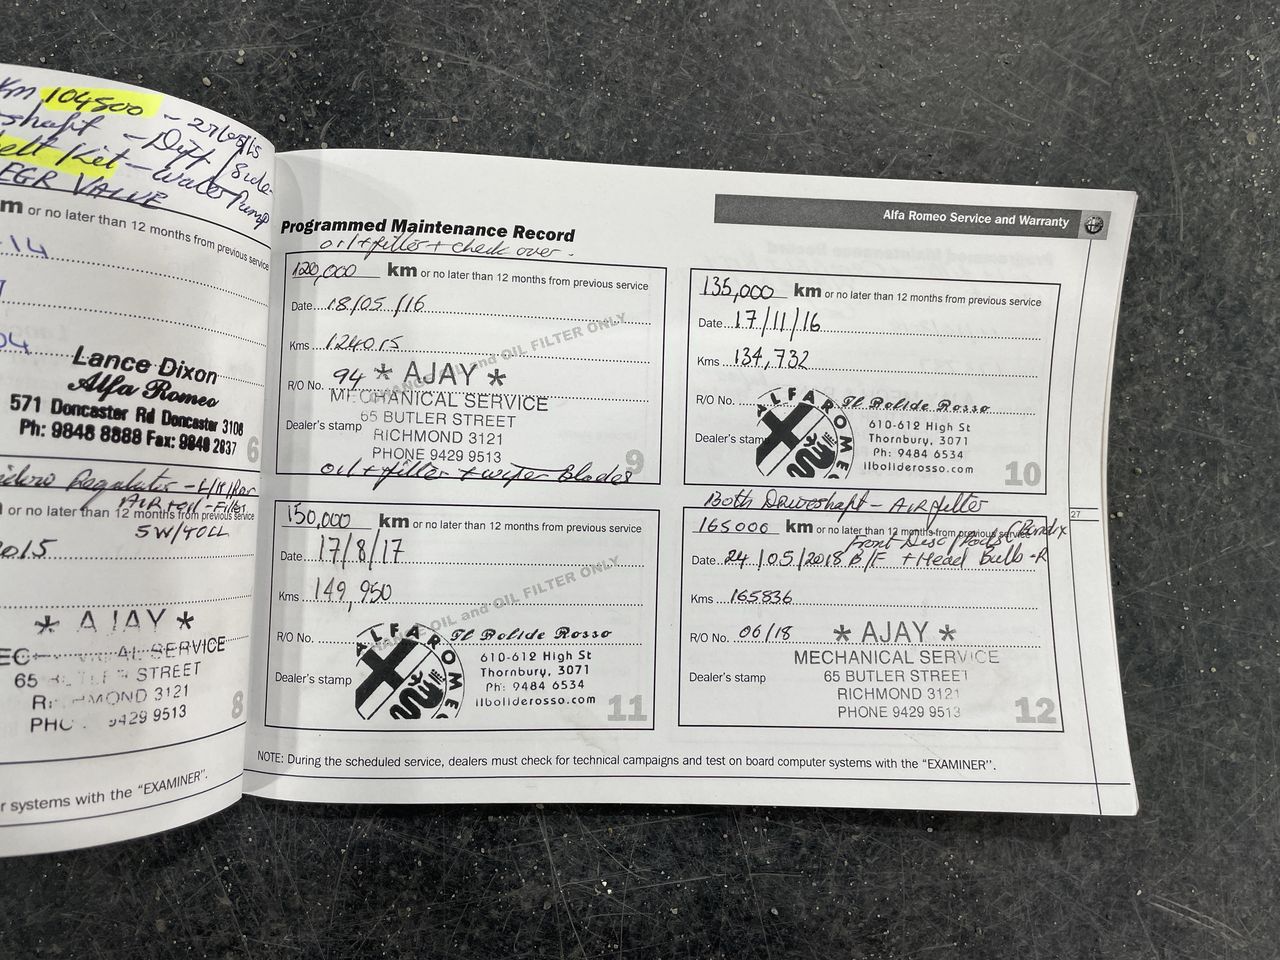 Km 104800 - 27/05/15
shaft - Diff / Side-
Belt Kit - Water Pump
EGR VALVE
m or no later than 12 months from previous service
-14
04
Lance Dixon
Alfa Romeo
571 Doncaster Rd Doncaster 3108
Ph: 9848 8888 Fax: 9848 2837
6
Regulator - L/H/Rear
or no later than 12 months from previous service
5W/40LL
2015
* AJAY *
AL SERVICE
65 STREET
RICHMOND 3121
PHO 9429 9513
8
r systems with the "EXAMINER".
Alfa Romeo Service and Warranty
Programmed Maintenance Record
oil + filter + check over.
120,000 km or no later than 12 months from previous service
Date 18/05/16
Kms 124015
R/O No. 94
Dealer's stamp
CHANGE OIL and OIL FILTER ONLY
* AJAY *
MECHANICAL SERVICE
65 BUTLER STREET
RICHMOND 3121
PHONE 9429 9513
9
135,000 km or no later than 12 months from previous service
Date 17/11/16
Kms 134,732
R/O No.
Dealer's stamp
ALFA ROMEO
Il Bolide Rosso
610-612 High St
Thornbury, 3071
Ph: 9484 6534
ilboliderosso.com
10
oil + filter + wiper Blades
150,000 km or no later than 12 months from previous service
Date 17/8/17
Kms 149,950
R/O No.
Dealer's stamp
CHANGE OIL and OIL FILTER ONLY
ALFA ROMEO
Il Bolide Rosso
610-612 High St
Thornbury, 3071
Ph: 9484 6534
ilboliderosso.com
11
Both Driveshaft - AIR filter
165000 km or no later than 12 months from previous service
Front Disc/Pads (Bendix
Date 24/05/2018 B/F + Head Bulb - R
Kms 165836
R/O No. 06/18
Dealer's stamp
* AJAY *
MECHANICAL SERVICE
65 BUTLER STREET
RICHMOND 3121
PHONE 9429 9513
12
27
NOTE: During the scheduled service, dealers must check for technical campaigns and test on board computer systems with the "EXAMINER".